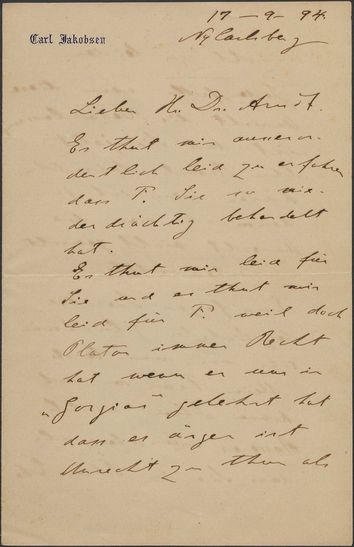 17-9-94.
Ny Carlsberg
Carl Jakobsen
Lieber Hr. Dr. Arndt.
Es thut mir ausseror-
dentlich leid zu erfahren
dass F. Sie so nie-
derträchtig behandelt
hat.
Es thut mir leid für
Sie und es thut mir
leid für F. weil doch
Platon immer Recht
hat wenn er uns in
„Gorgias" gelehrt hat
dass es ärger ist
Unrecht zu thun als